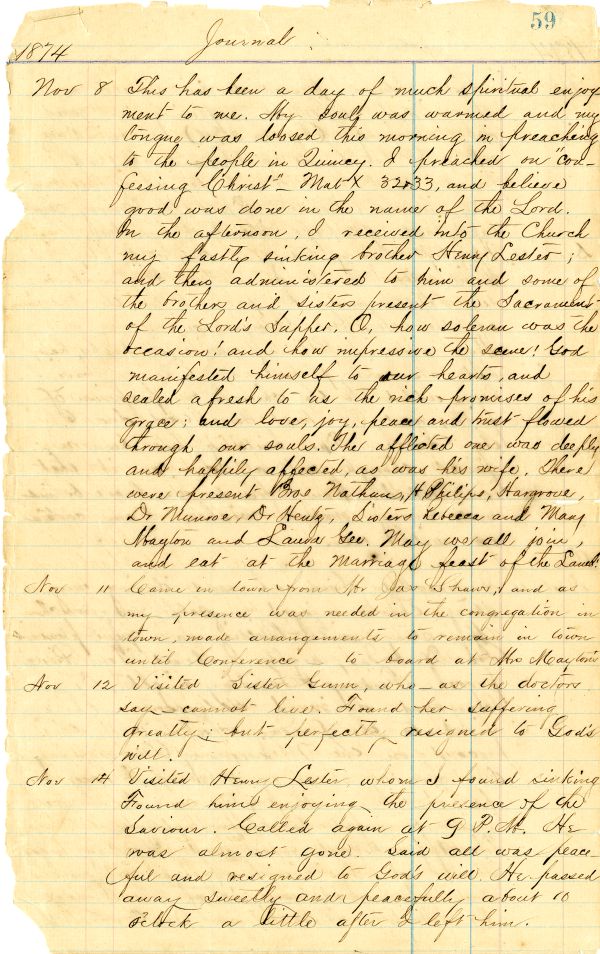 59
1874 Journal.
Nov 8 This has been a day of much spiritual enjoy
ment to me. My soul was warmed and my
tongue was loosed this morning in preaching
to the people in Quincy. I preached on "con-
fessing Christ" – Mat X 32+33, and believe
good was done in the name of the Lord.
In the afternoon, I received into the Church
my fastly sinking brother Henry Lester;
and then administered to him and some of
the brothers and sisters present the Sacrament
of the Lord's Supper. O, how solemn was the
occasion! and how impressive the scene! God
manifested himself to our hearts, and
sealed afresh to us the rich promises of his
grace; and love, joy, peace and trust flowed
through our souls. The afflicted one was deeply
and happily affected, as was his wife. There
were present Bros Nathans, H Philips, Hargrove,
Dr Munroe, Dr Hentz, Sisters Rebecca and Mary
Mayton and Laura Gee. May we all join,
and eat at the marriage feast of the Lamb.
Nov 11 Came in town from Mr Jas Shaws, and as
my presence was needed in the congregation in
town, made arrangements to remain in town
until Conference – to board at Mrs Mayton's
Nov 12 Visited Sister Gunn, who – as the doctors
say – cannot live. Found her suffering
greatly; but perfectly resigned to God's
will.
Nov 14 Visited Henry Lester, whom I found sinking
Found him enjoying the presence of the
Saviour. Called again at 9 P.M. He
was almost gone. Said all was peace-
ful and resigned to God's will. He passed
away sweetly and peacefully about 10
o'clock a little after I left him.